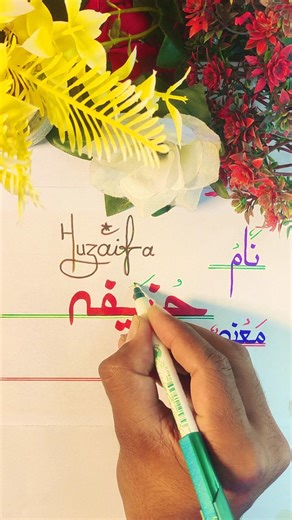 Huzaifa
نَامُ
حُذَیفہ
مَعْنیٰ